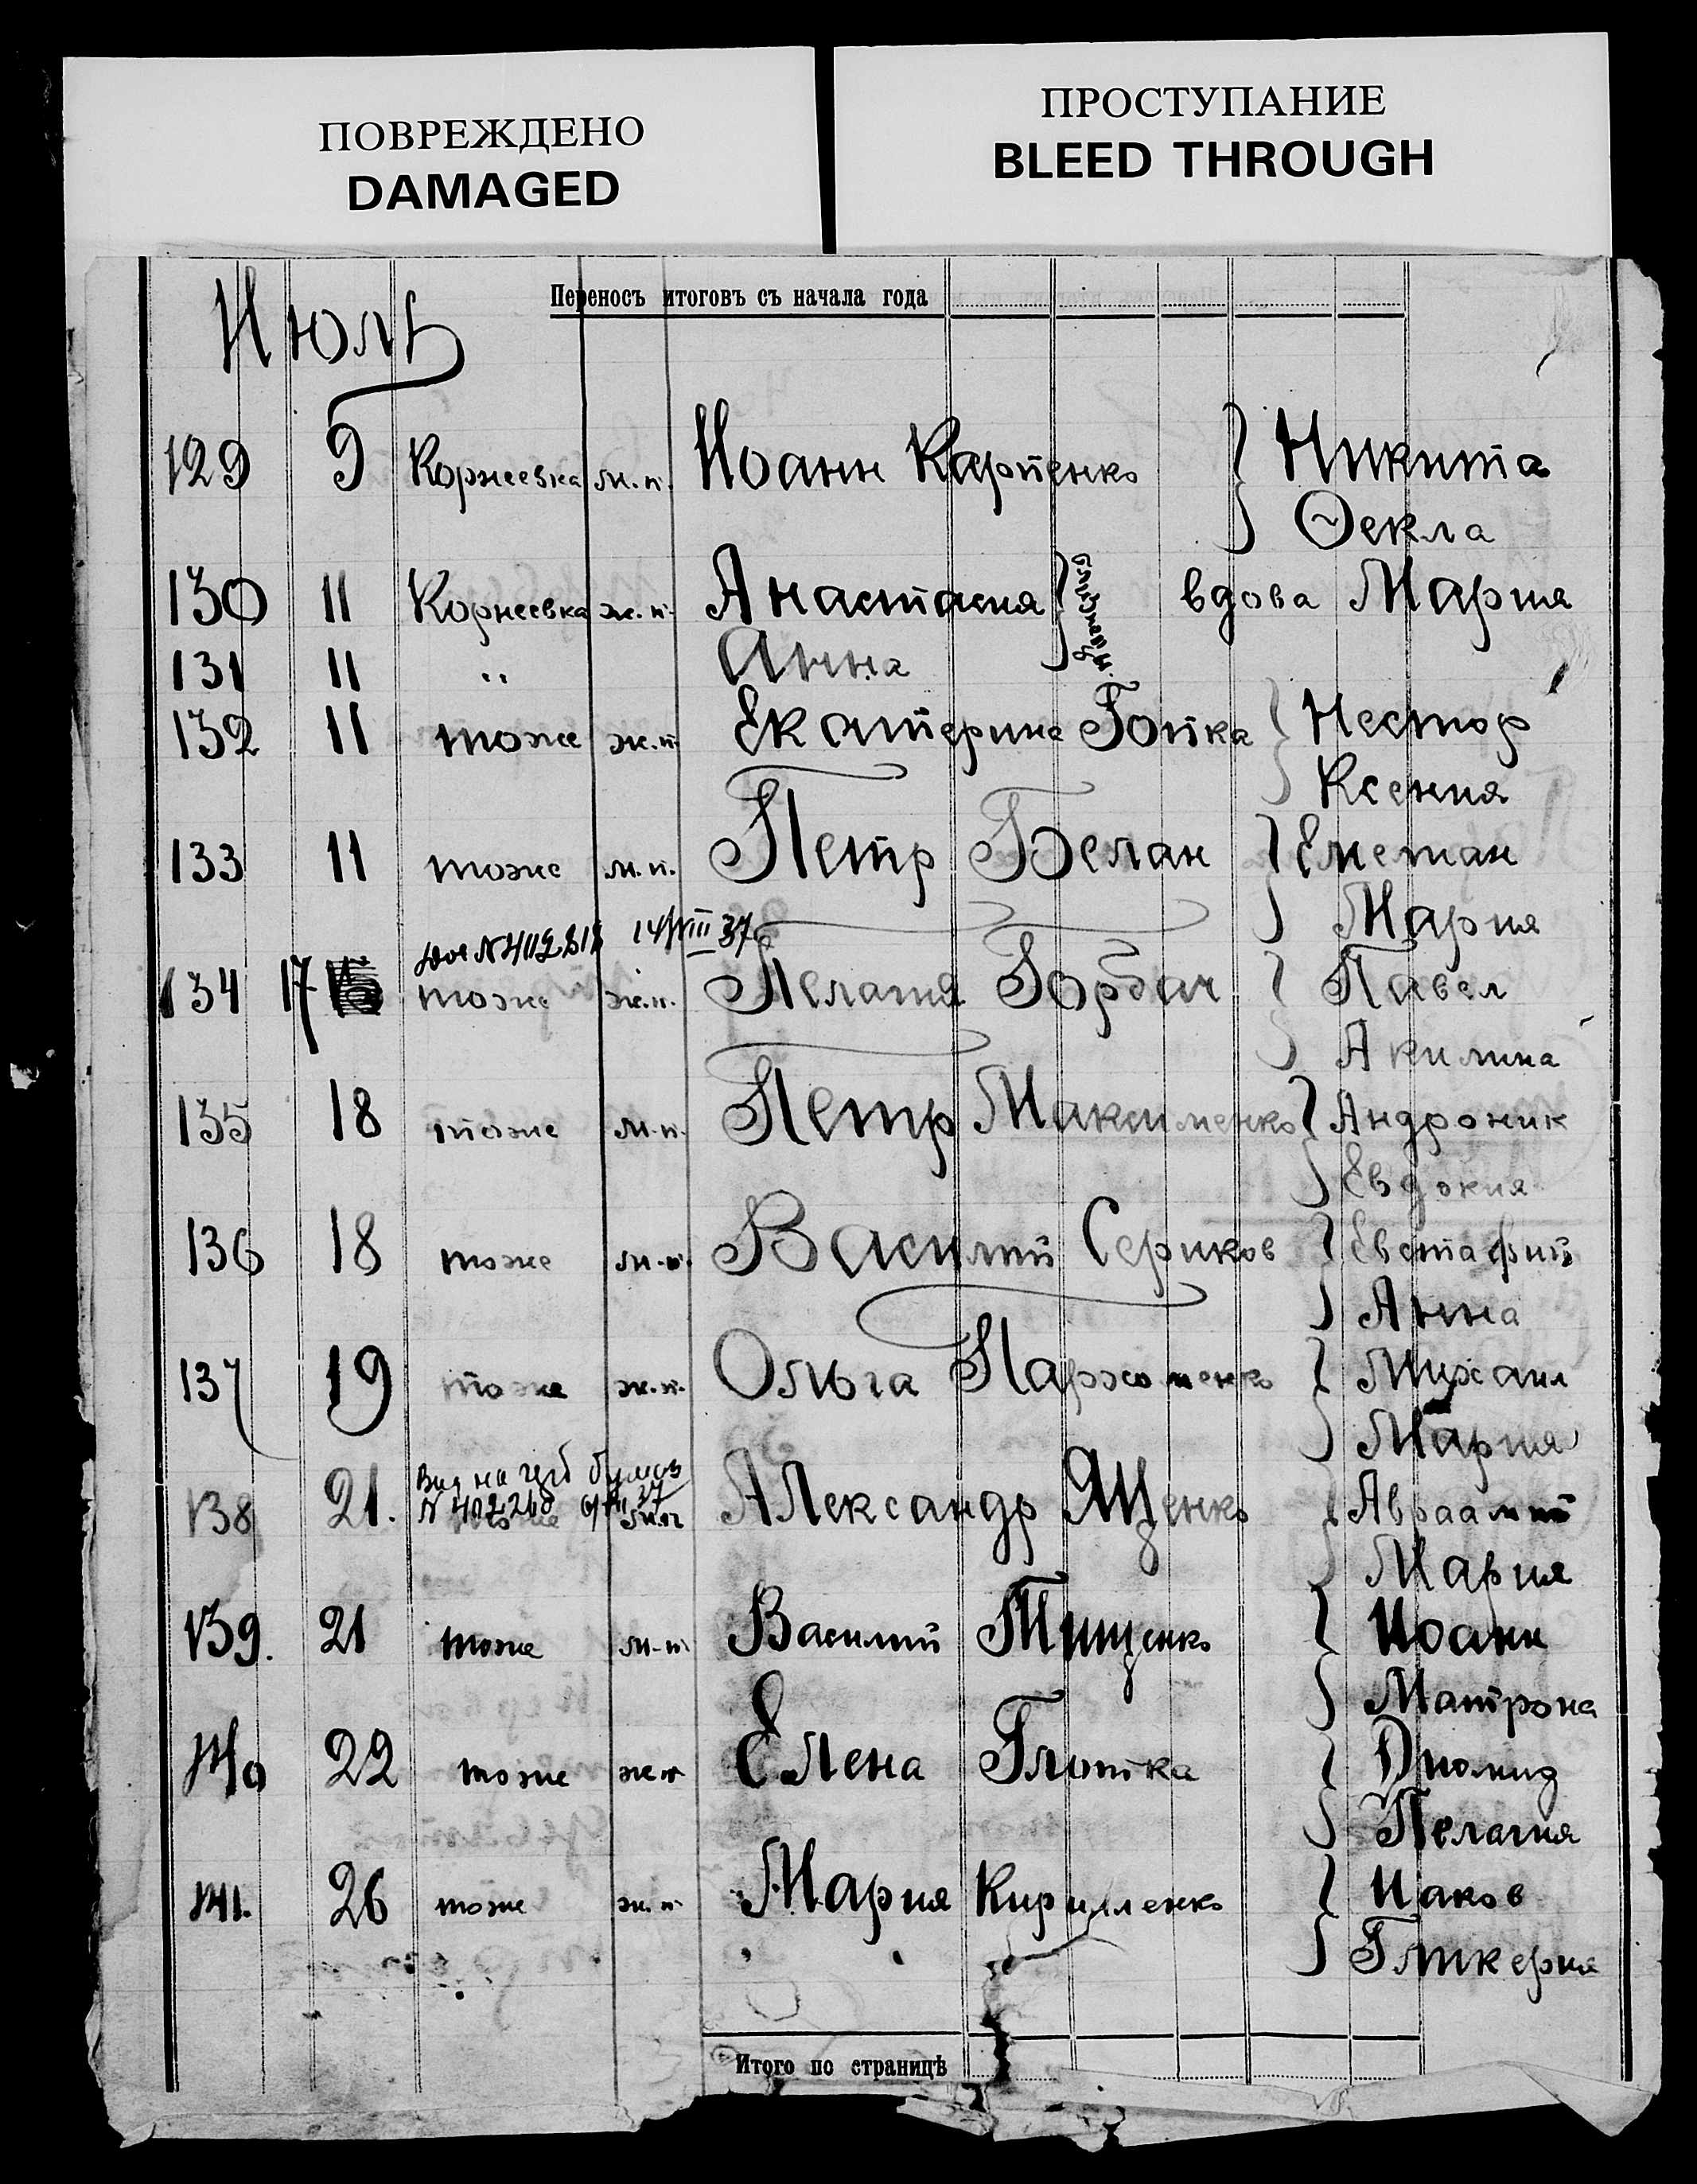 ПОВРЕЖДЕНО
DAMAGED
ПРОСТУПАНИЕ
BLEED THROUGH
Переносъ итоговъ съ начала года
Июль
129 9 Корнеевка м.п. Иоанн Карпенко Никита
Ѳекла
130 11 Корнеевка ж.п. Анастасия вдова Мария
131 11 " Анна
132 11 тоже ж.п. Екатерина Нестор
Ксения
133 11 тоже м.п. Петр Белан
Мария
14/VIII 37
134 17 тоже ж.п. Пелагия Горбач Павел
Акилина
135 18 тоже м.п. Петр Максименко Андроник
Евдокия
136 18 тоже м.п. Василий Сериков Евстафий
Анна
137 19 тоже ж.п. Ольга Пархоменко Михаил
Мария
138 21. Александр Ященко Авраамий
Мария
139. 21 тоже м.п. Василий Тищенко Иоанн
Матрона
140 22 тоже ж.п. Елена Диомид
Пелагия
141. 26 тоже ж.п. Мария Кирилленко Иаков
Гликерия
Итого по страницѣ